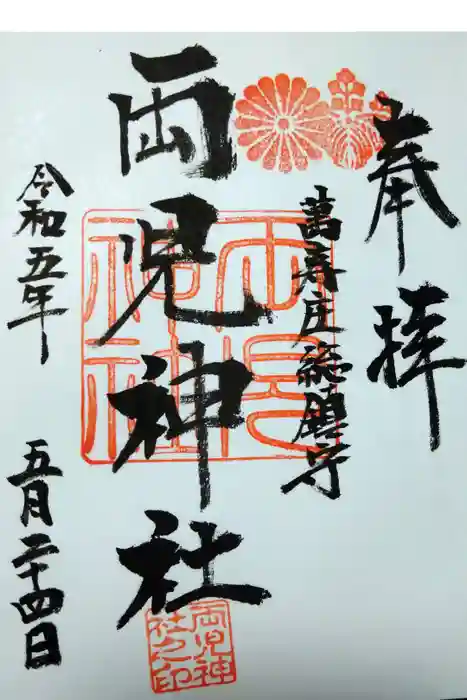 奉拝
萬寿庄総鎮守
両児神社
両児
神社
両児神
社之印
令和五年
五月二十四日